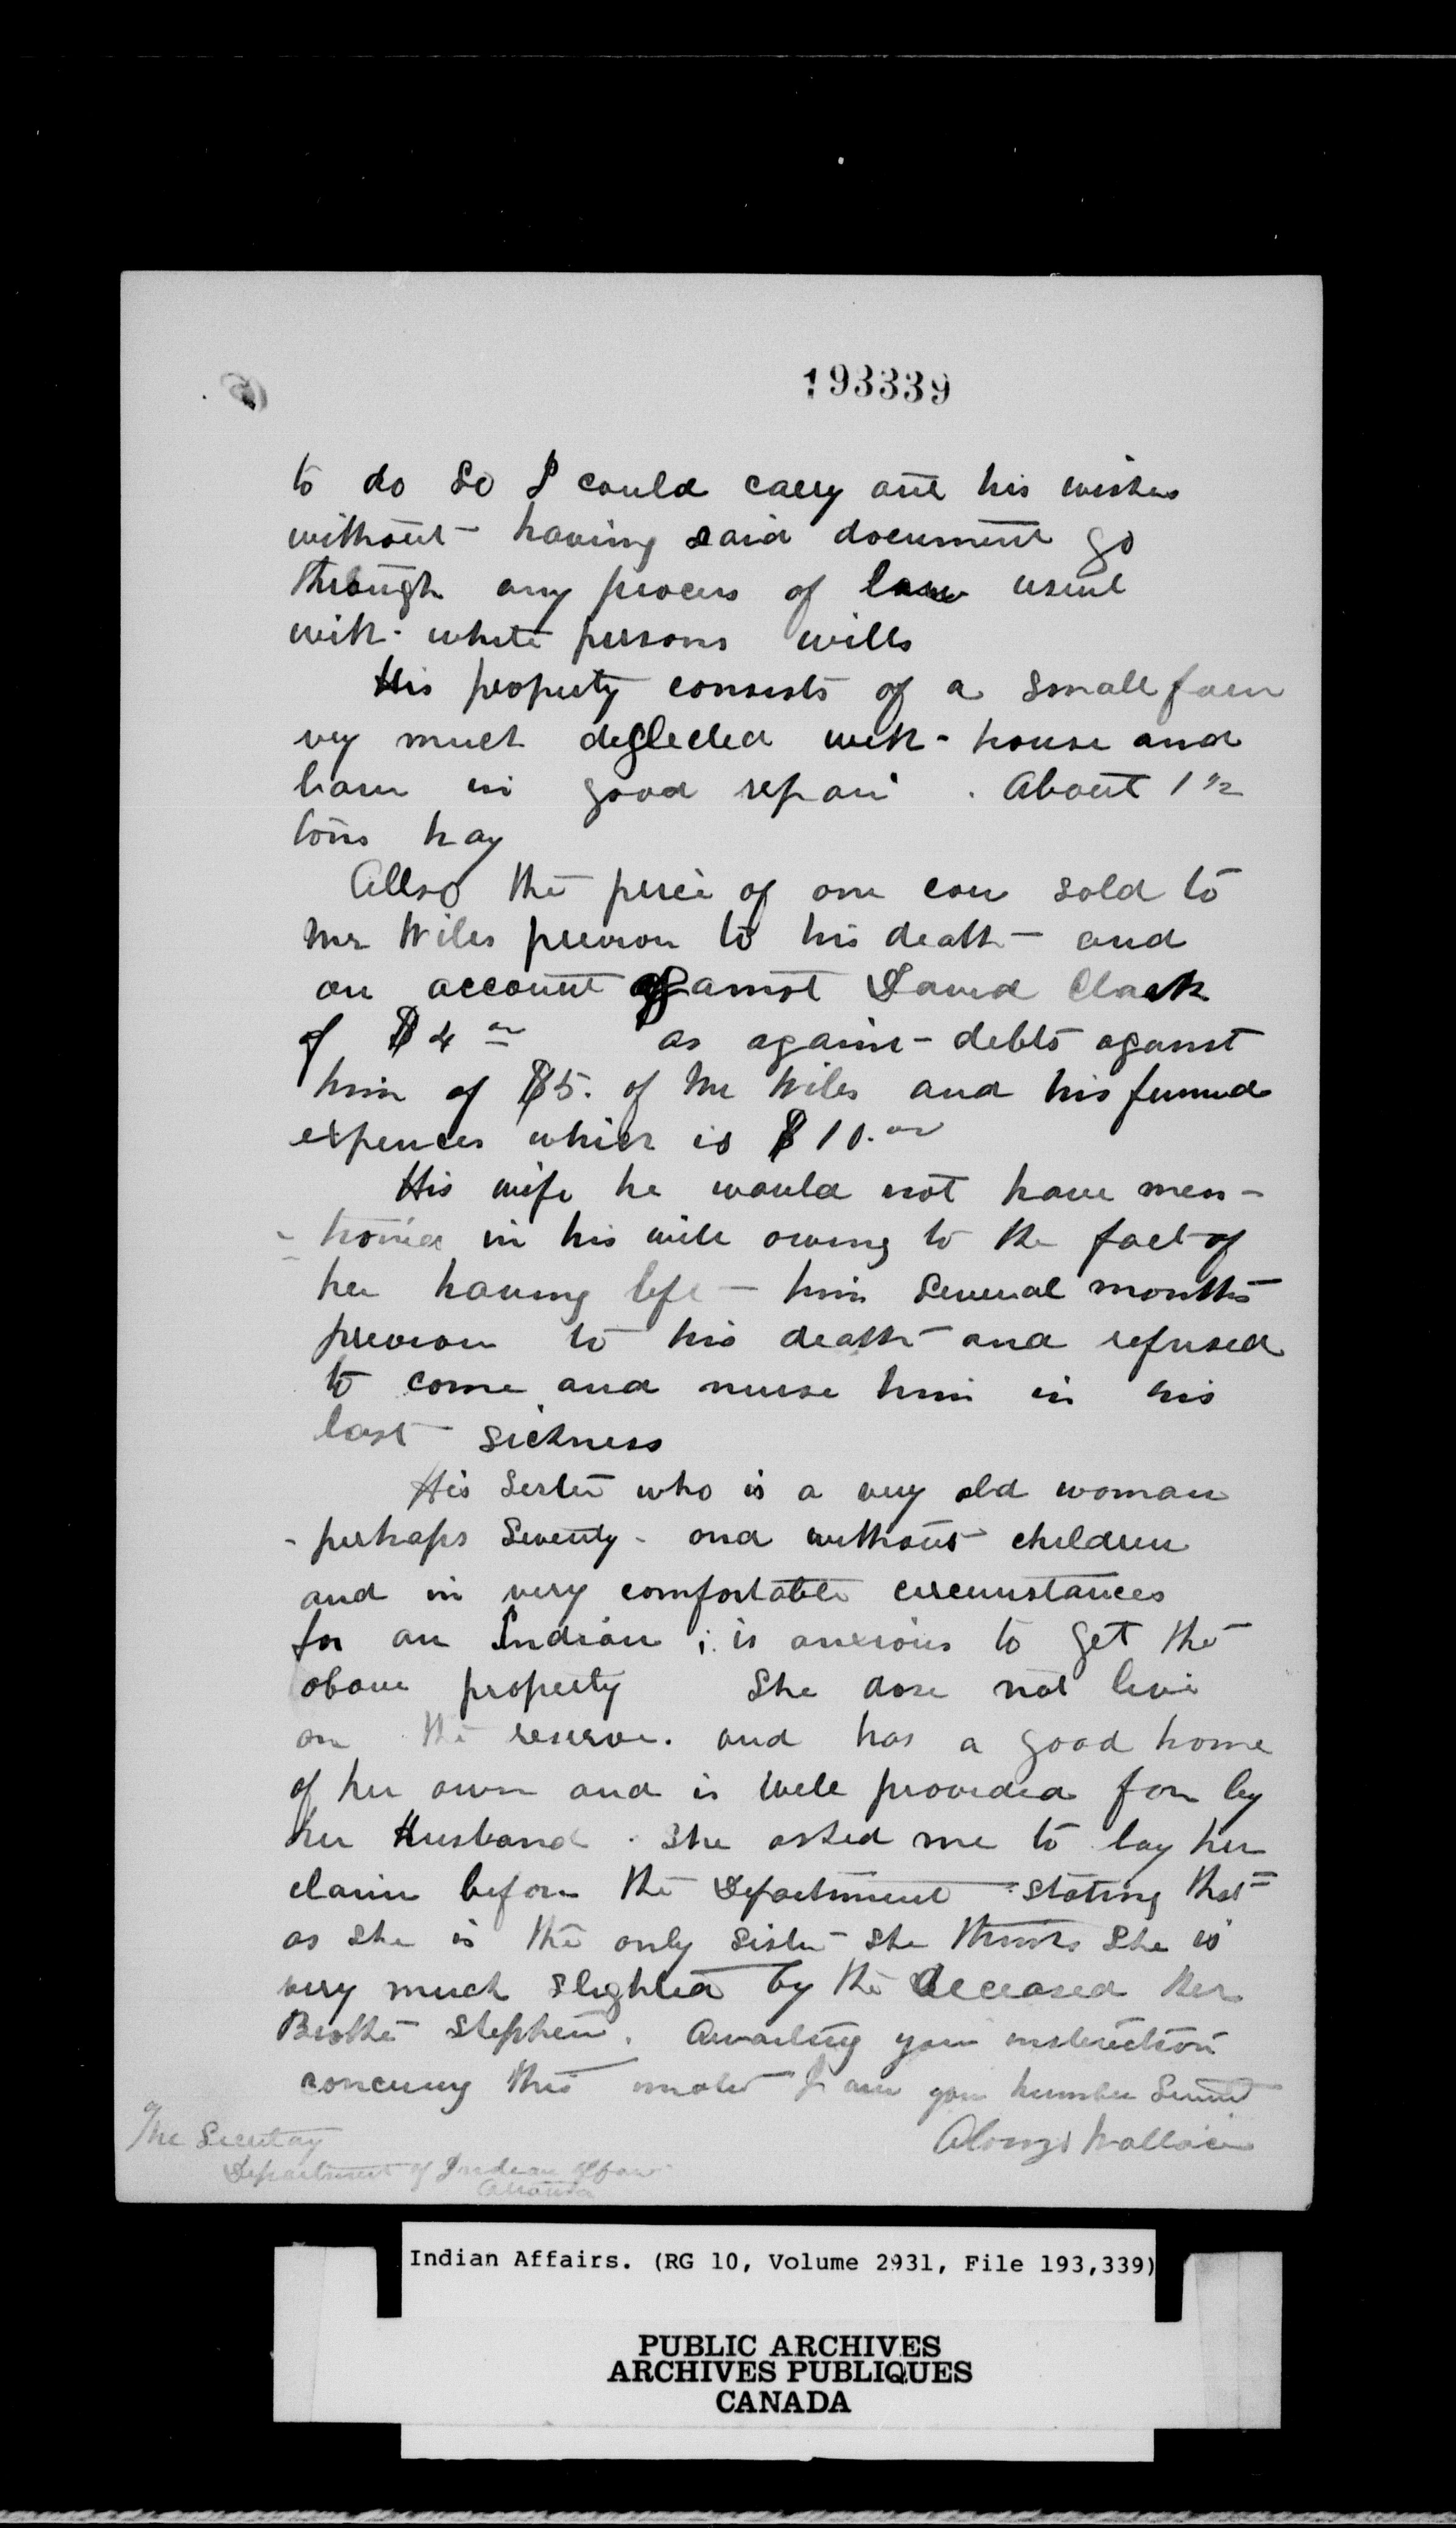 193339
to do So I could carry out his wishes
without having said document go
through any process of law usual
with white persons wills
His property consists of a small farm
very much deglected with house and
barn in good repair. About 1 1/2
tons hay
Allso the price of one cow sold to
Mr Wiles previous to his death and
an account against David Clark
of $4 00 as against debts against
him of $5. of Mr Wiles and his funeral
expences which is $10.00
His wife he would not have men-
-tioned in his will owing to the fact of
her having left him Several months
previous to his death and refused
to come and nurse him in his
last sickness
His Sister who is a very old woman
- perhaps Seventy - and without children
and in very comfortable circumstances
for an Indian; is anxious to get the
above property She dose not live
on the reserve. and has a good home
of her own and is well provided for by
her Husband. She asked me to lay her
claim before the Department stating that
as she is the only sister she thinks She is
very much slighted by the deceased her
Brother Stephen. Awaiting your instruction
concerning this matter I am your humble Servant
Alonzo Wallace
The Secretary
Department of Indian Affairs
Ottawa
Indian Affairs. (RG 10, Volume 2931, File 193,339)
PUBLIC ARCHIVES
ARCHIVES PUBLIQUES
CANADA